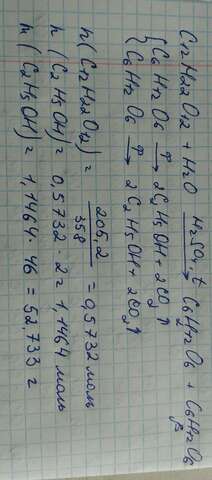 C12H22O12 + H2O H2SO4, t → C6H12O6 + C6H12O6
{C6H12O6 → 2C2H5OH + 2CO2↑
C6H12O6 → 2C2H5OH + 2CO2↑
n(C12H22O12) = 205,2/358 = 0,5732 моль
n(C2H5OH) = 0,5732·2 = 1,1464 моль
m(C2H5OH) = 1,1464·46 = 52,733 г